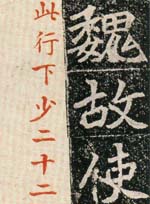 魏故使
此行下少二十二